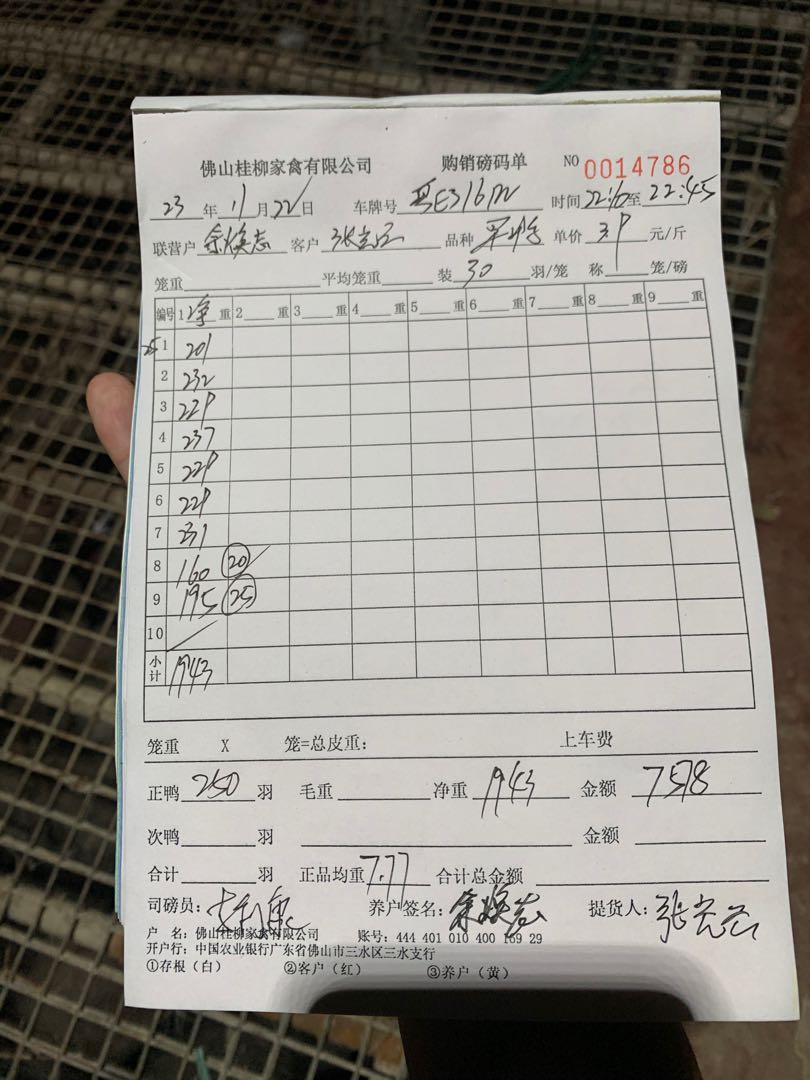 佛山桂柳家禽有限公司 购销磅码单 NO 0014786
23 年 11 月 22 日 车牌号 粤E316 时间 22:10 至 22:45
联营户 余焕志 客户 张 品种 单价 3.9 元/斤
笼重 平均笼重 装 30 羽/笼 称 笼/磅
编号 1 净 重 2 重 3 重 4 重 5 重 6 重 7 重 8 重 9 重
25 1 201
2 232
3 229
4 237
5 229
6 229
7 231
8 160 20
9 195 25
10
小计 1943
笼重 X 笼=总皮重: 上车费
正鸭 250 羽 毛重 净重 1943 金额 7578
次鸭 羽 金额
合计 羽 正品均重 7.77 合计总金额
司磅员: 养户签名: 余焕志 提货人: 张
户 名: 佛山桂柳家禽有限公司 账号: 444 401 010 400 169 29
开户行: 中国农业银行广东省佛山市三水区三水支行
①存根（白） ②客户（红） ③养户（黄）